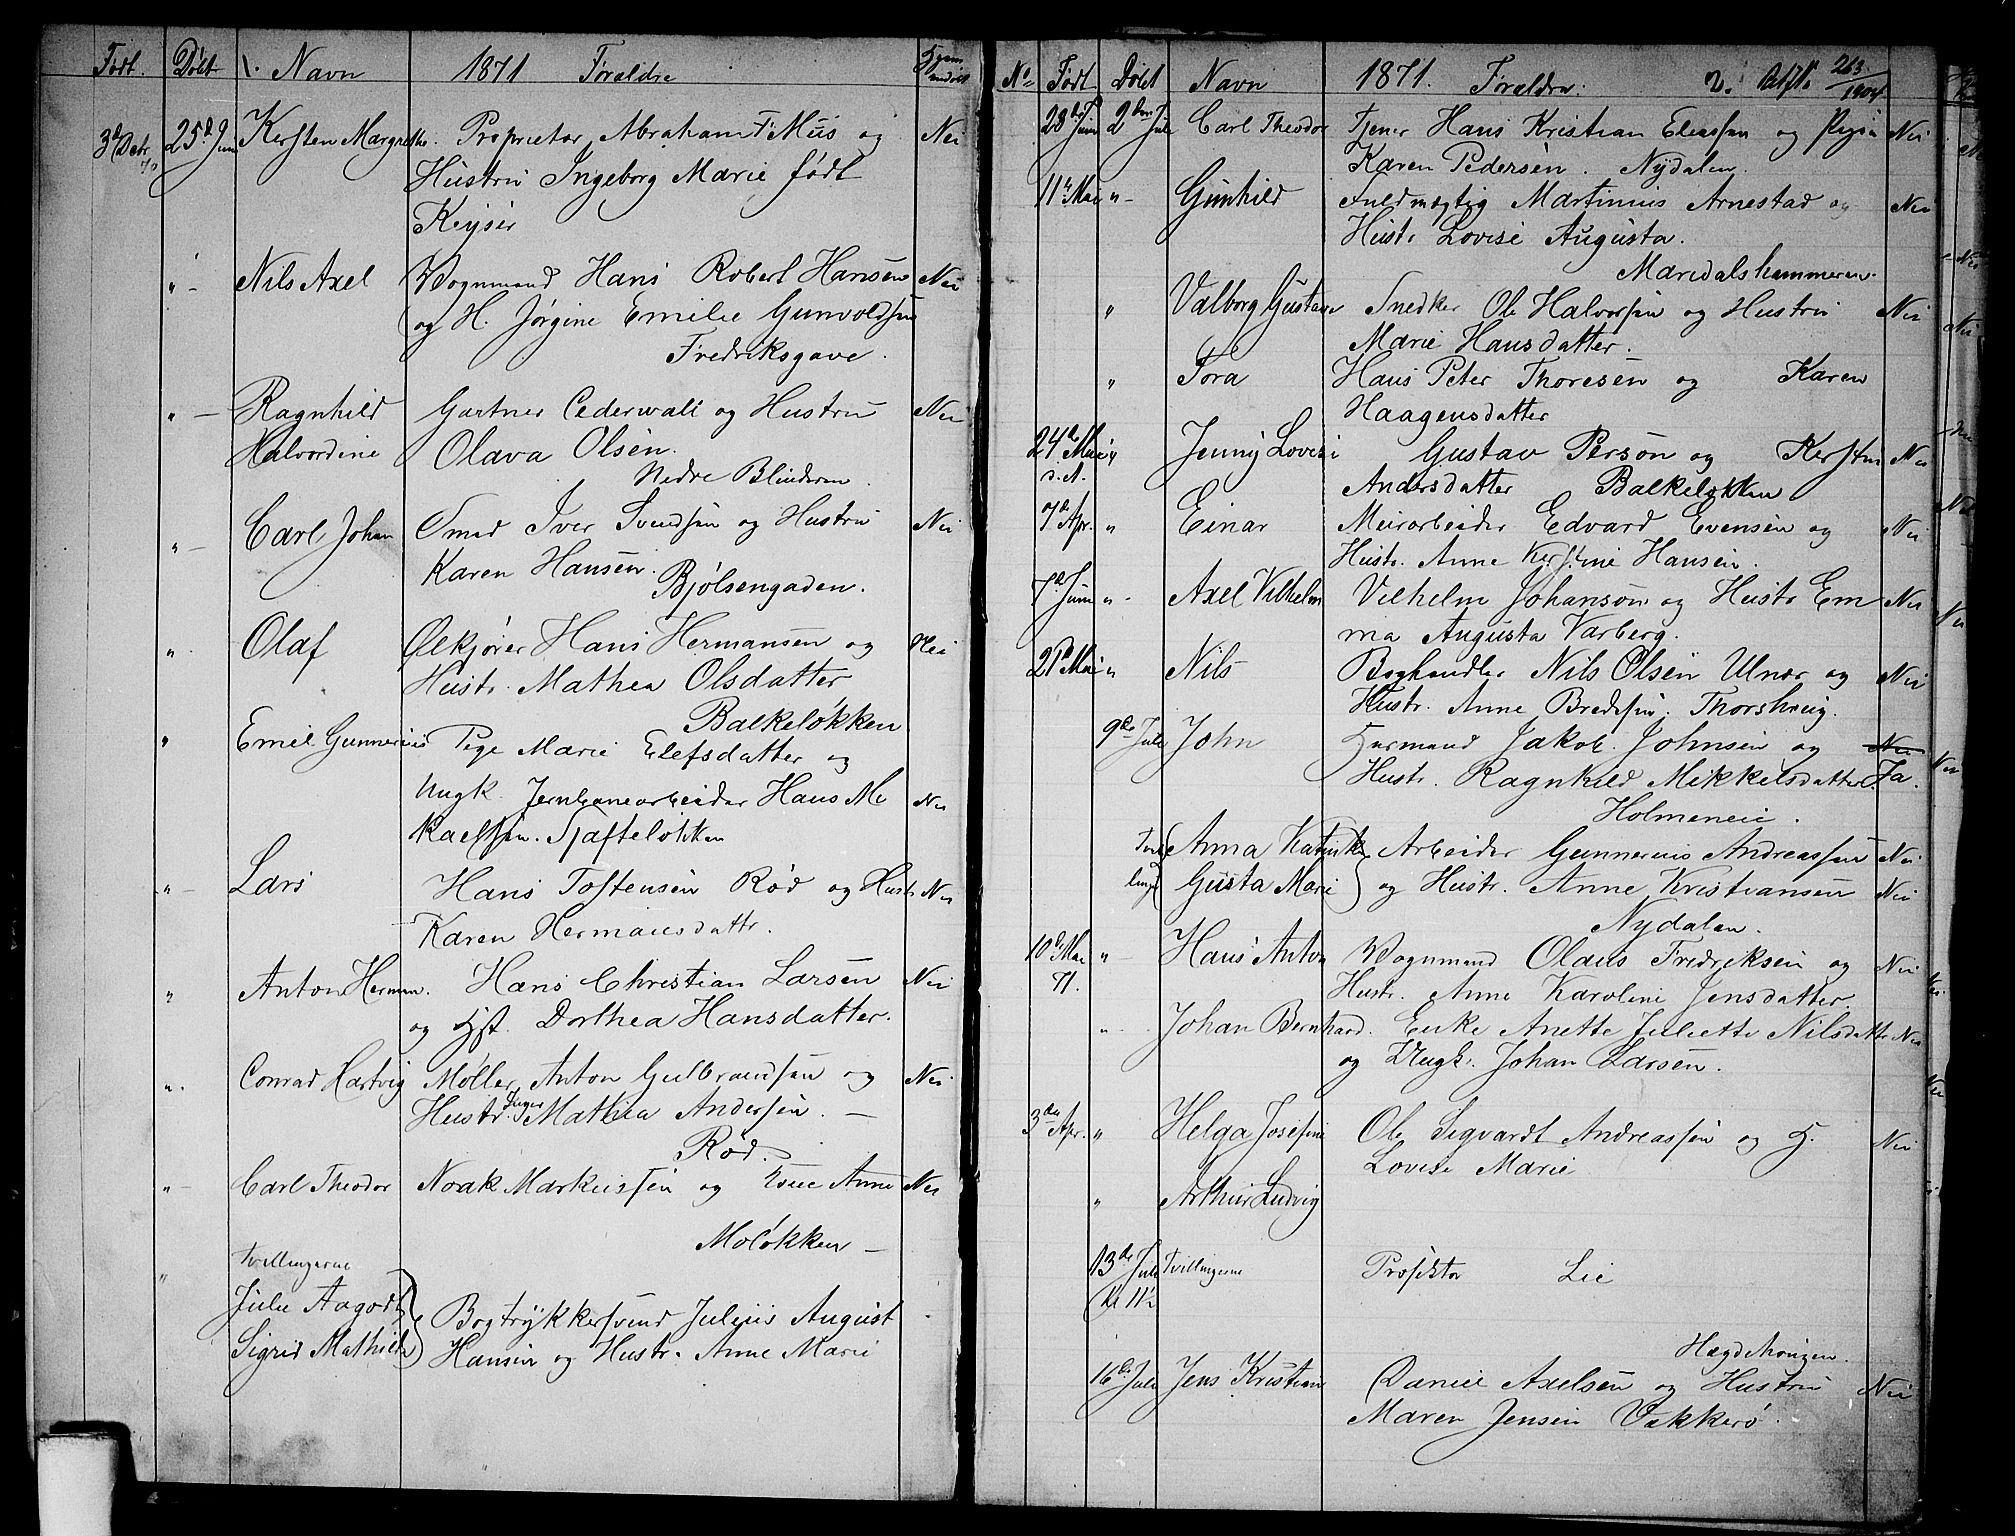 Født. Døbt 1. Navn 1871 Forældre
3d Debr. 70 25d Juni Kersten Margrethe. Proprietær Abraham F. Mus og Nei
Hustru Ingeborg Marie født
Keyser
" - Nils Axel Vognmand Hans Robert Hansen Nei
og H. Jørgine Emilie Gunvoldsen
Fredriksgave.
" - Ragnhild Gartner Cederwall og Hustru Nei
Halvordine Olava Olsen.
Nedre Blinderen.
" - Carl Johan Smed Iver Svendsen og Hustru Nei
Karen Hansen.
Bjølsengaden.
" Olaf Ølkjører Hans Hermansen og Nei
Hustr. Mathea Olsdatter
Balkeløkken
" Emil Gunnerius Pige Marie Elefsdatter og
Ungk. Jernbanearbeider Hans Mi Nei
kaelsen.
" - Lars Hans Tostensen Rød og Hustr Nei
Karen Hermansdattr.
" Anton Herman. Hans Christian Larsen Nei
og Hst. Dorthea Hansdatter.
" . Conrad Hartvig Møller Anton Gulbrandsen og Nei
Hustr. Mathea Andersen. -
Rød.
" - Carl Theodor Noak Markussen og Anne Nei
Moløkken -
tvillingerne
" Julie Aagodt
Sigrid Mathilde Bogtrykkersvend Julius August
Hansen og Hustr. Anne Marie
No Født Døbt Navn 1871. Forældre. 2. 263/1904
28de Juni 2den Juli Carl Theodor Tjener Hans Kristian Eliassen og Nei
Karen Pedersen. Nydalen.
11te Mai " - Gunhild Fuldmægtig Martinius Arnestad og Nei
Hustr Lovise Augusta.
Maridalshammeren.
" Valborg Gustava Snedker Ole Halvorsen og Hustru Nei
Marie Hansdatter.
" Tora Hans Peter Thoresen og Karen
Haagensdatter
24de Mai " Jenny Lovise Gustav Person og Kersten Nei
s. A. Andersdatter Balkeløkken
7de Apr. " Einar Meiarbeider Edvard Evensen og Nei
Hustr. Anne Kerstine Hansen.
7de Juni " - Axel Vilhelm Vilhelm Johanson og Hustr Em Nei
ma Augusta Varberg.
21de Mai " Nils Boghandler Nils Olsen Ulnæs og Nei
Hustr. Anne Bredesen. Thorshaug.
9de Juli John Husmand Jakob Johnsen og Nei
Hustr. Ragnhild Mikkelsdatter. Ja.
Holmeneie.
Tvil Anna Katinka Arbeider Gunnerius Andreassen Nei
linger Gusta Marie og Hustr. Anne Kristiansen Nei
Nydalen.
10de Mai " - Hans Anton Vognmand Olaus Fredriksen og Nei
71. Hustr. Anne Karoline Jensdatter.
" - Johan Bernhard. Enke Anette Juliette Nilsdattr Nei
og Ungk. Johan Larsen.
3de Apr. " Helga Josefine Ole Sigvardt Andreassen og H. Nei
Lovise Marie
" Arthur Ludvig
13de Juli Tvillingerne Prosektor Lie
Kl 11½
Hægdehaugen.
16de Juli Jens Kristian Daniel Axelsen og Hustru Nei
Maren Jensen Vækkerø.